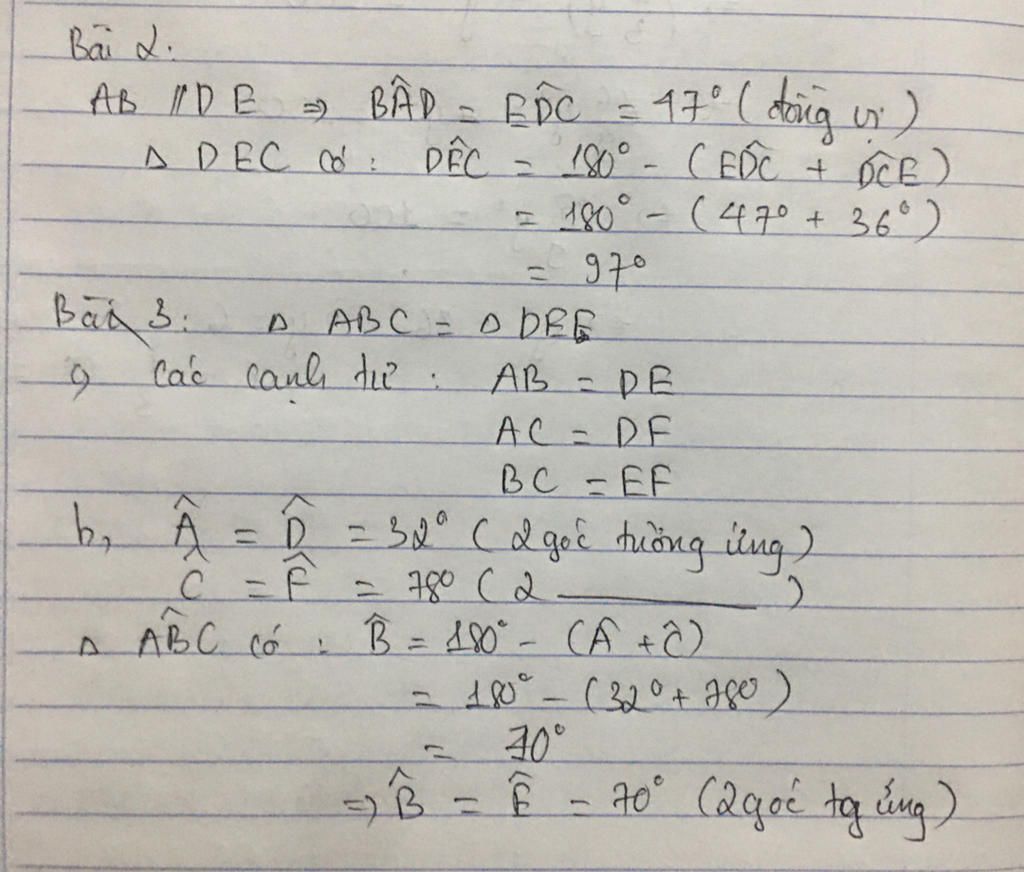 Bài 2:
AB // DE ⇒ BÂD = ED̂C = 47° (đồng vị)
Δ DEC có : DÊC = 180° - (ED̂C + DĈE)
= 180° - (47° + 36°)
= 97°
Bài 3: Δ ABC = Δ DEF
các cạnh tư : AB = DE
AC = DF
BC = EF
b, Â = D̂ = 32° (2 góc tương ứng)
Ĉ = F̂ = 78° (2 ________)
Δ AB̂C có : B̂ = 180° - (Â + Ĉ)
= 180° - (32° + 78°)
= 70°
=> B̂ = Ê = 70° (2 góc tg ứng)